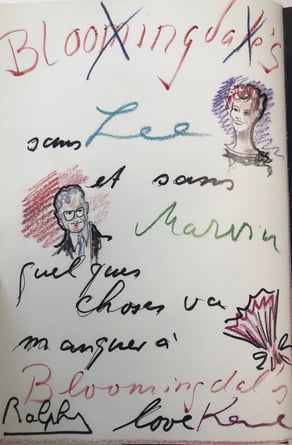 Bloomingdale's
sans Lee
et sans
Marvin
quelques
choses va
manquer à
Bloomingdal s
Ralphy love